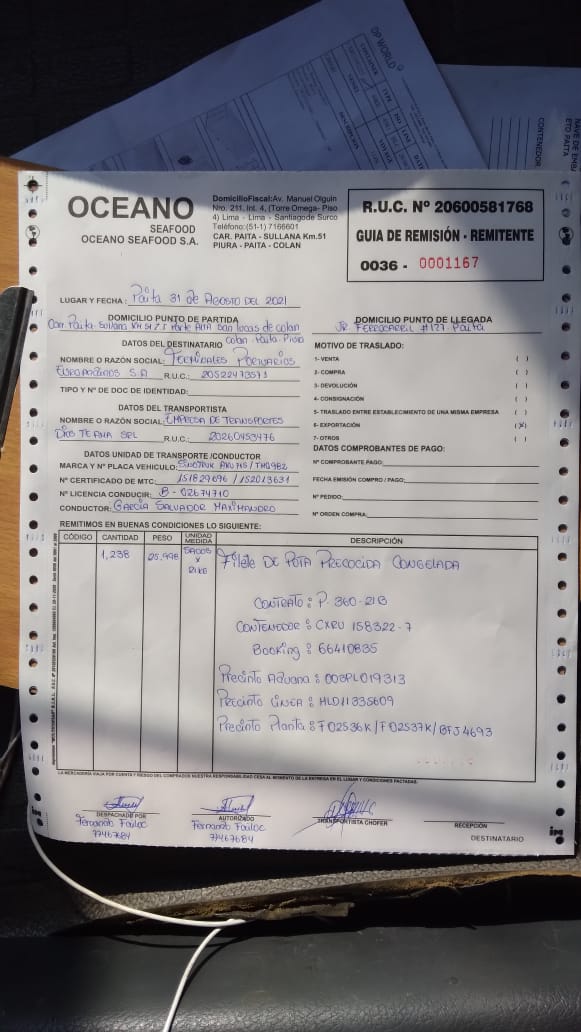 DP WORLD
CONTENEDOR
OCEANO
SEAFOOD
OCEANO SEAFOOD S.A.
DomicilioFiscal:Av. Manuel Olguin
Nro. 211, Int. 4, (Torre Omega- Piso
4) Lima - Lima - Santiagode Surco
Teléfono:(51-1) 7166601
CAR. PAITA - SULLANA Km.51
PIURA - PAITA - COLAN
R.U.C. Nº 20600581768
GUIA DE REMISIÓN - REMITENTE
0036 - 0001167
LUGAR Y FECHA: Paita 31 de Agosto DEL 2021
DOMICILIO PUNTO DE PARTIDA
DOMICILIO PUNTO DE LLEGADA
JR. FERROCARRIL #127 Paita
DATOS DEL DESTINATARIO
MOTIVO DE TRASLADO:
NOMBRE O RAZÓN SOCIAL: Terminales Portuarios
Euroandinos S.A R.U.C.: 20522473571
TIPO Y Nº DE DOC DE IDENTIDAD:
1- VENTA ( )
2- COMPRA ( )
3- DEVOLUCIÓN ( )
4- CONSIGNACIÓN ( )
5- TRASLADO ENTRE ESTABLECIMIENTO DE UNA MISMA EMPRESA ( )
6- EXPORTACIÓN (X)
7- OTROS ( )
DATOS DEL TRANSPORTISTA
NOMBRE O RAZÓN SOCIAL: EMPRESA DE TRANSPORTES
DIOS TE AMA SRL R.U.C.: 20260453476
DATOS UNIDAD DE TRANSPORTE /CONDUCTOR
MARCA Y Nº PLACA VEHICULO:
Nº CERTIFICADO DE MTC: 151829696 / 152013631
Nº LICENCIA CONDUCIR: B - 02674710
CONDUCTOR: GARCÍA SALVADOR MAXIMANDRO
DATOS COMPROBANTES DE PAGO:
Nº COMPROBANTE PAGO:
FECHA EMISIÓN COMPRO / PAGO:
Nº PEDIDO:
Nº ORDEN COMPRA:
REMITIMOS EN BUENAS CONDICIONES LO SIGUIENTE:
CÓDIGO CANTIDAD PESO UNIDAD MEDIDA DESCRIPCIÓN
1,238 25,998 SACOS X 21KG Filete DE POTA PRECOCIDA CONGELADA
CONTRATO: P-360-21B
CONTENEDOR: CXRU 158322-7
Booking: 66410835
Precinto Aduana: 008PL019313
Precinto Línea: HLD11335609
Precinto Planta: F02536K/F02537K/BFJ4693
LA MERCADERÍA VIAJA POR CUENTA Y RIESGO DEL COMPRADOS NUESTRA RESPONSABILIDAD CESA AL MOMENTO DE LA EMPRESA EN EL LUGAR Y CONDICIONES PACTADAS.
DESPACHADO POR
AUTORIZADO
TRANSPORTISTA CHOFER
RECEPCIÓN
DESTINATARIO
Fernando Failoc
77467684
Fernando Failoc
77467684